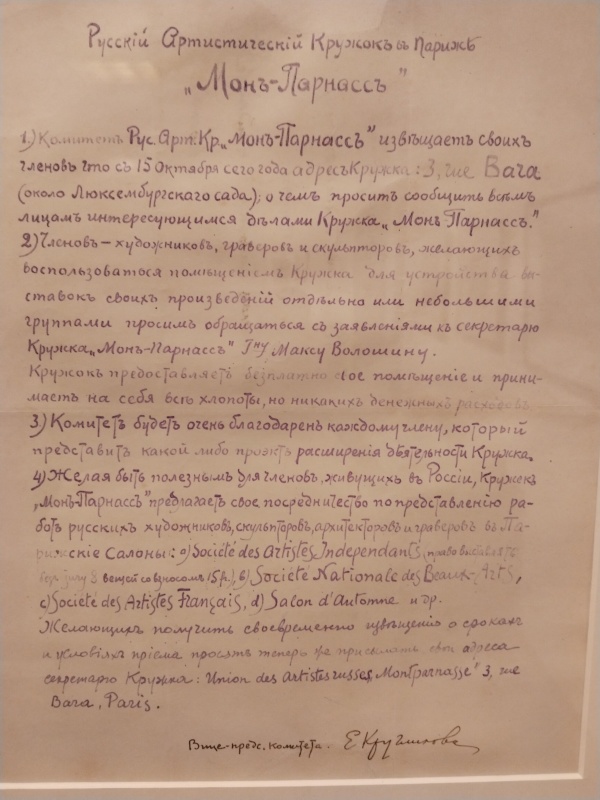 Русскій Артистическій Кружокъ въ Парижѣ
„Монъ-Парнассъ"
1) Комитетъ Рус. Арт. Кр. „Монъ-Парнассъ" извѣщаетъ своихъ
членовъ что съ 15 Октября сего года адресъ Кружка: 3, rue Bara
(около Люксембургскаго сада); о чемъ проситъ сообщить всѣмъ
лицамъ интересующимся дѣлами Кружка „Монъ Парнассъ."
2) Членовъ – художниковъ, граверовъ и скульпторовъ, желающихъ
воспользоваться помѣщеніемъ Кружка для устройства вы-
ставокъ своихъ произведеній отдѣльно или небольшими
группами просимъ обращаться съ заявленіями къ секретарю
Кружка „Монъ-Парнассъ" Гну Максу Волошину.
Кружокъ предоставляетъ безплатно свое помѣщеніе и прини-
маетъ на себя всѣ хлопоты, но никакихъ денежныхъ расходовъ
3) Комитетъ будетъ очень благодаренъ каждому члену, который
представитъ какой либо проэктъ расширенія дѣятельности Кружка.
4) Желая быть полезнымъ для членовъ, живущихъ въ Россіи, Кружокъ
„Монъ-Парнассъ" предлагаетъ свое посредничество по представленію ра-
ботъ русскихъ художниковъ, скульпторовъ, архитекторовъ и граверовъ въ Па-
рижскіе Салоны: a) Société des Artistes Independants, право выставлять
безъ jury 8 вещей со взносомъ 15 fr.), b) Société Nationale des Beaux-Arts,
c) Société des Artistes Français, d) Salon d'Automne и др.
Желающихъ получить своевременно извѣщенію о срокахъ
и условіяхъ пріема просятъ теперь же присылать свои адреса
секретарю Кружка: Union des Artistes russes, Montparnasse" 3, rue
Bara, Paris.
Вице-предс. комитета. Е Кругликова